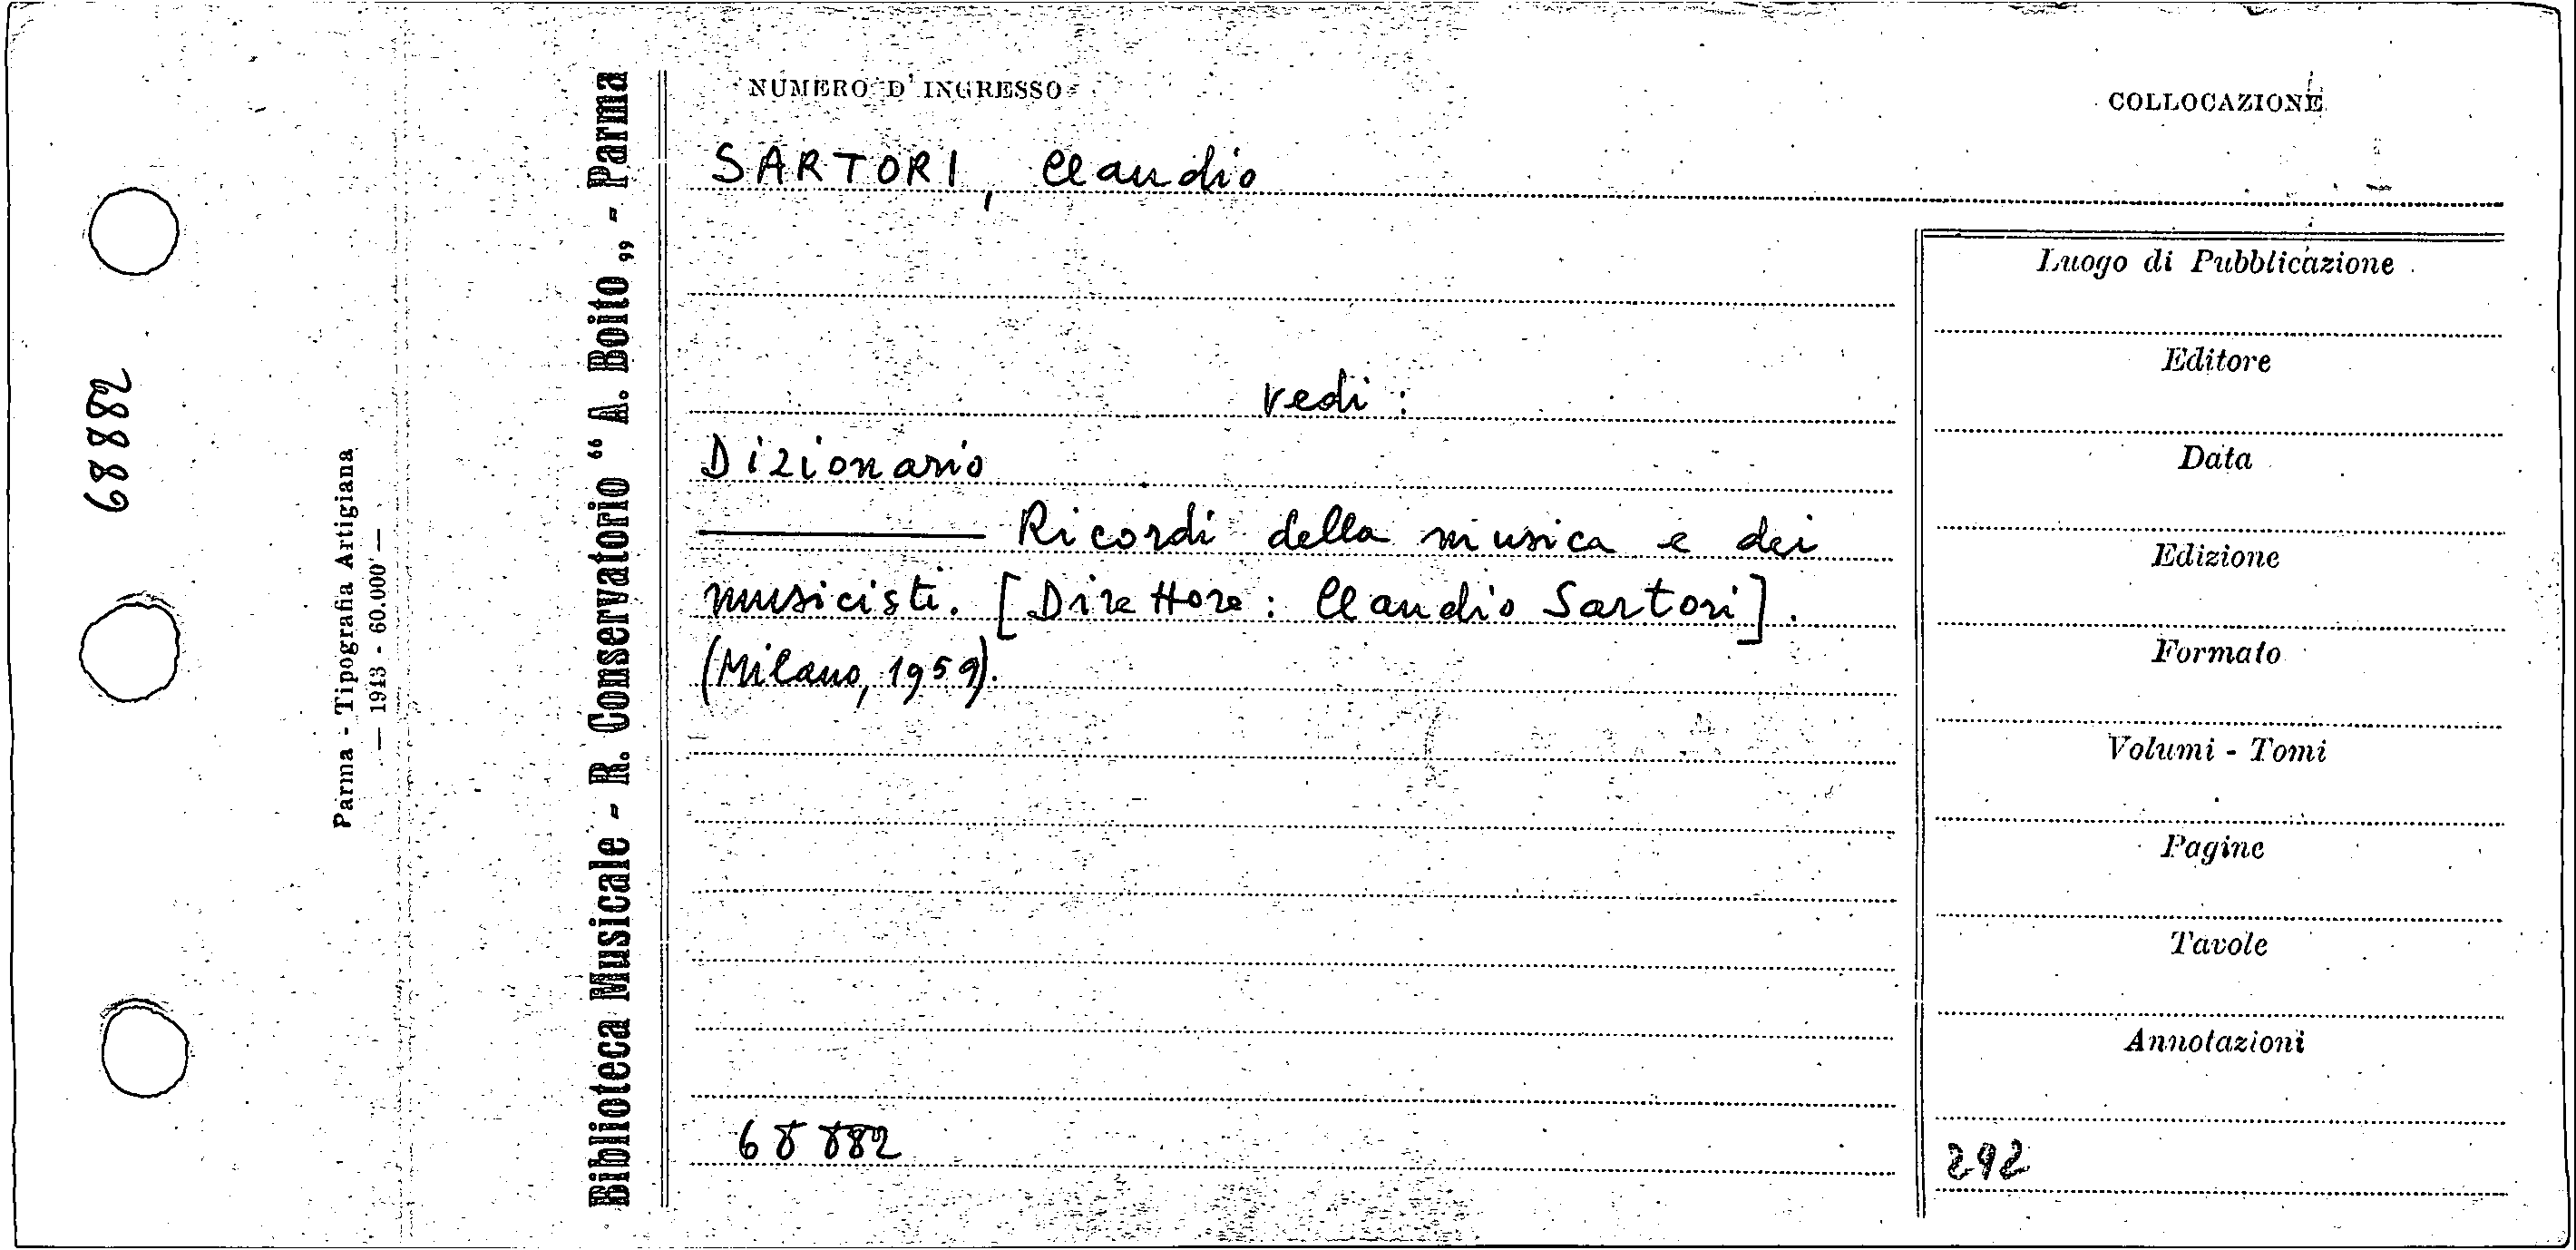 68882
Parma - Tipografia Artigiana
— 1943 - 60.000 —
Biblioteca Musicale - R. Conservatorio “ A. Boito „ - Parma
NUMERO D'INGRESSO
COLLOCAZIONE
SARTORI, Claudio
vedi:
Dizionario
——— Ricordi della musica e dei
musicisti. [Direttore: Claudio Sartori].
(Milano, 1959).
68882
Luogo di Pubblicazione
Editore
Data
Edizione
Formato
Volumi - Tomi
Pagine
Tavole
Annotazioni
292